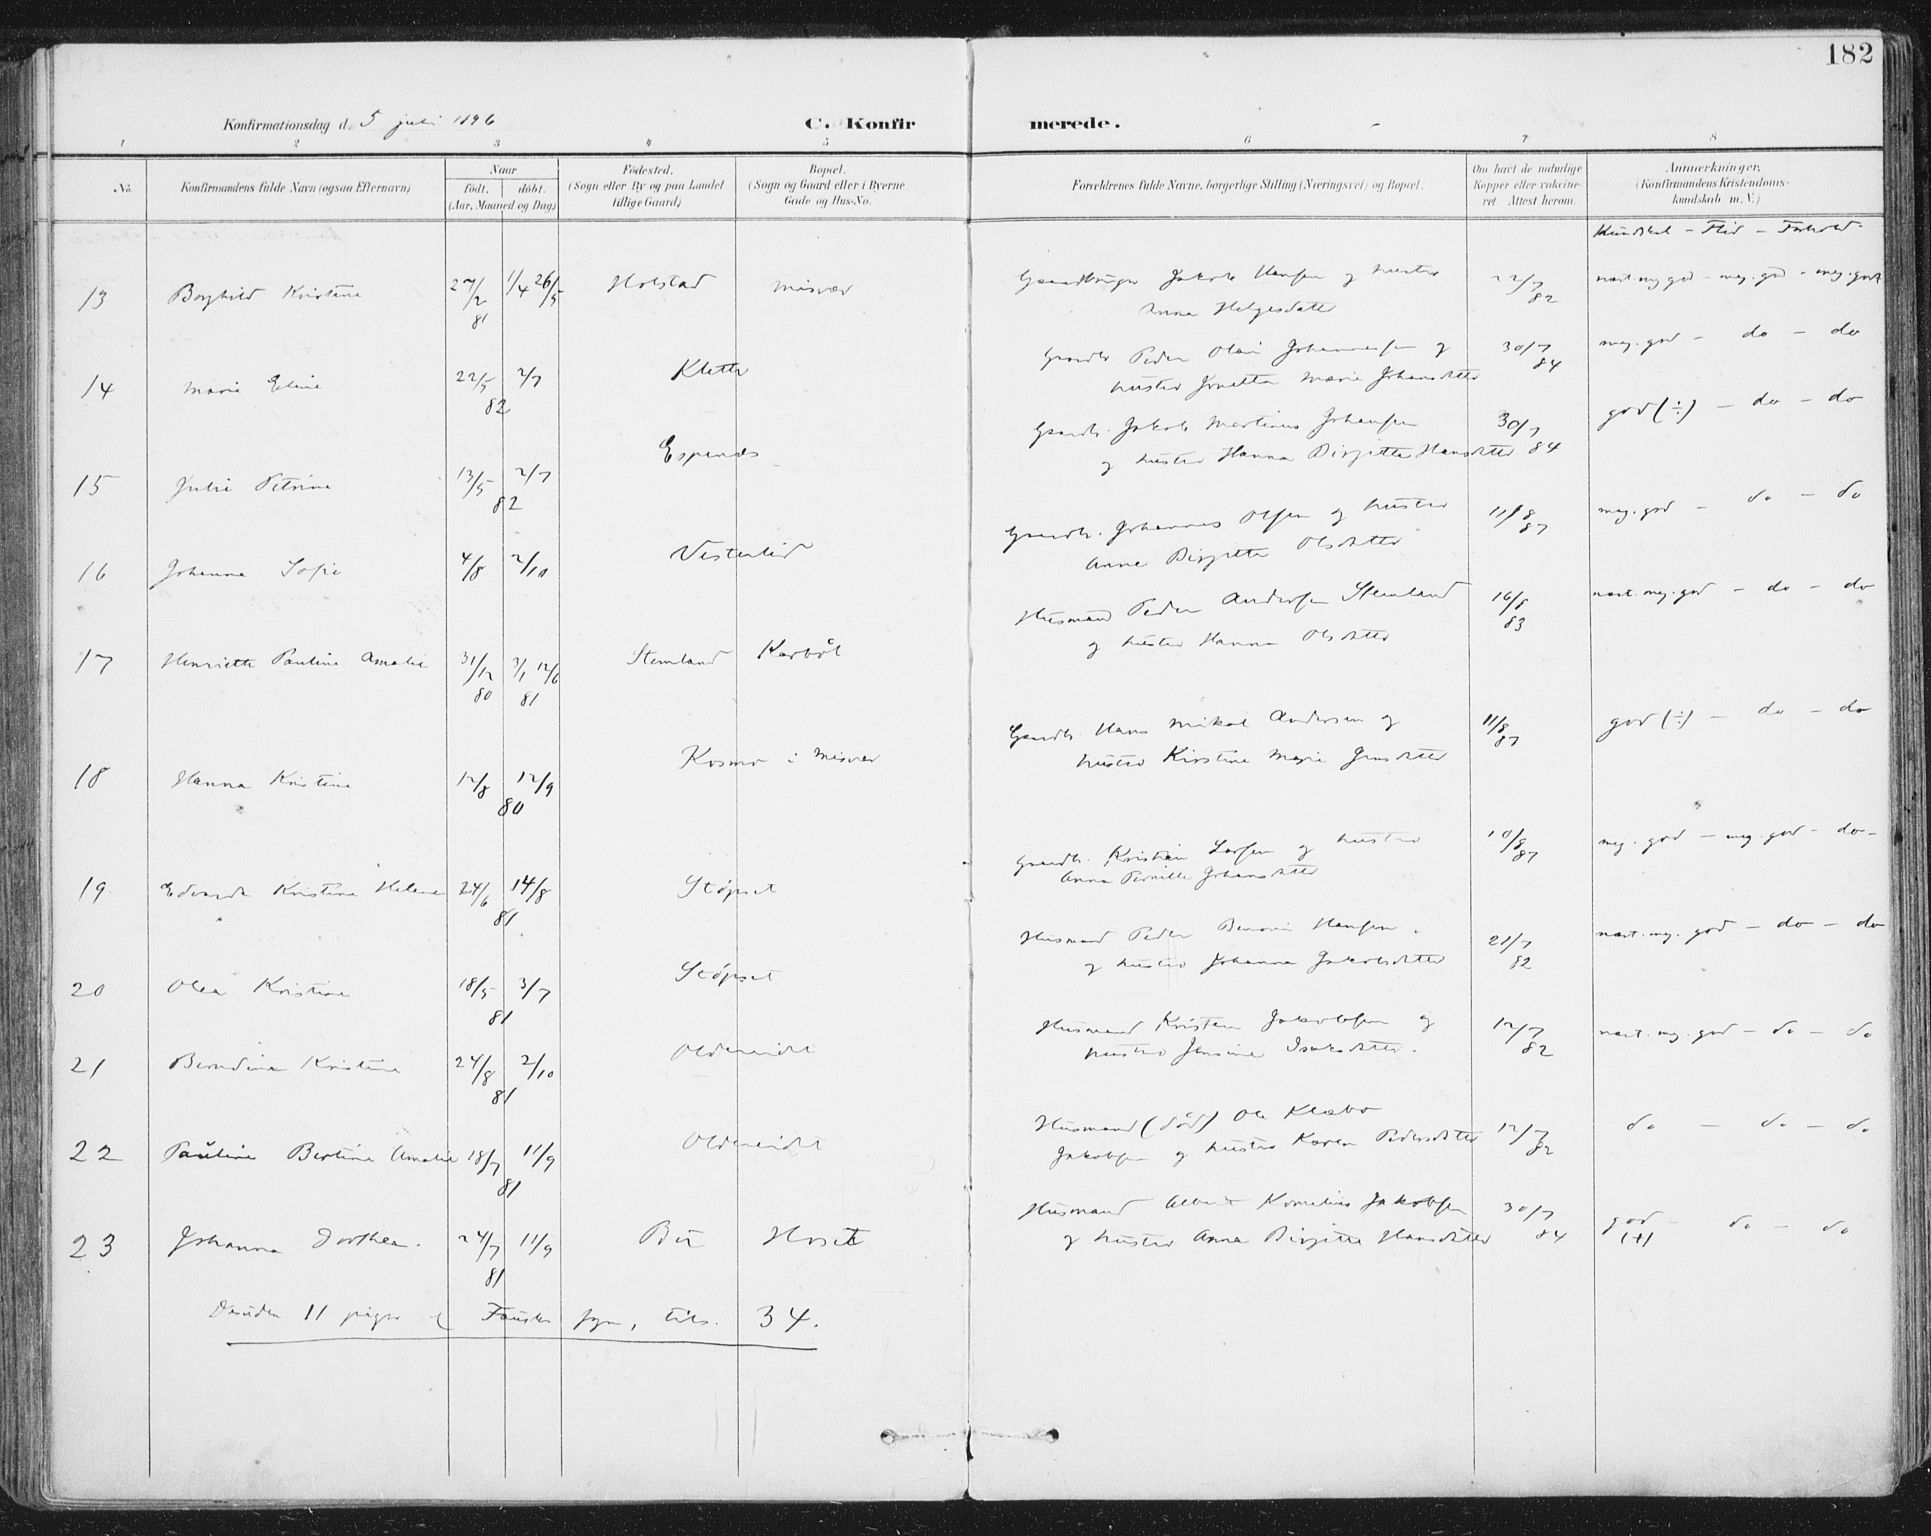 182
Konfirmationsdag d. 5 juli 1896
C. Konfirmerede.
1 2 3 4 5 6 7 8
No. Konfirmandens fulde Navn (ogsaa Efternavn) Naar født. døbt. (Aar, Maaned og Dag) Fødested. (Sogn eller By og paa Landet tillige Gaard) Bopæl. (Sogn og Gaard eller i Byerne Gade og Hus-No. Forældrenes fulde Navne, borgerlige Stilling (Næringsvei) og Bopæl. Om havt de naturlige Kopper eller vakcineret. Attest herom. Anmerkninger, (Konfirmandens Kristendomskundskab m. V.)
Kundskab - Flid - Forhold
13 Borghild Kristine 27/2 81 1/4 26/5 Holstad Misvær Gaardbruger Jakob Hansen og hustru 22/7 82 næst. meg. god - meg. god - meg. godt
Anna Helgesdatter
14 Marie Eline 22/5 2/7 82 Kletten Gaardb. Peder Olai Johannesen og 30/7 84 meg. god - do - do
hustru Jonetta Marie Johansdatter
15 Julie Petrine 13/5 2/7 82 Espenes Gaardb. Jakob Martinus Johansen 30/7 84 god (÷) - do - do
og hustru Hanna Birgitte Hansdatter
16 Johanna Sofie 4/8 2/10 Vesterlid Gaardb. Johannes Olsen og hustru 11/8 87 meg. god - do - do
Anne Birgitte Olsdatter
17 Henriette Pauline Amalie 31/12 80 3/1 12/6 81 Stemland Karbøl Husmand Peder Andersen Stemland 16/8 83 næst. meg. god - do - do
og hustru Hanna Olsdatter
18 Hanna Kristine 12/8 12/9 80 Kosmo i Misvær Gaardb. Hans Mikal Andersen og 11/8 87 god (÷) - do - do
hustru Kirstine Marie Jensdatter
19 Edvarda Kristine Helene 24/6 14/8 81 Støpset Gaardb. Kristian Larsen og hustru 10/8 87 meg. god - meg. god - do -
Anna Pernille Johansdatter
20 Olea Kristine 18/5 3/7 81 Støpset Husmand Peder Benoni Hansen 21/7 82 næst. meg. god - do - do
og hustru Johanna Jakobsdatter
21 Berndine Kristine 24/8 2/10 81 Oldereidet Husmand Kristen Jakobsen og 12/7 82 næst. meg. god - do - do
hustru Jensine Isaksdatter.
22 Pauline Bertine Amalie 18/7 11/9 81 Oldereidet Husmand (død) Ole Klæbo 12/7 82 do - do - do
Jakobsen og hustru Karen Pedersdatter
23 Johanna Dorthea. 24/7 11/9 81 Bø Hoset Husmand Albert Kornelius Jakobsen 30/7 84 god (+) - do - do
og hustru Anna Birgitte Hansdatter
Desuden 11 piger af Fauske sogn, tils. 34.